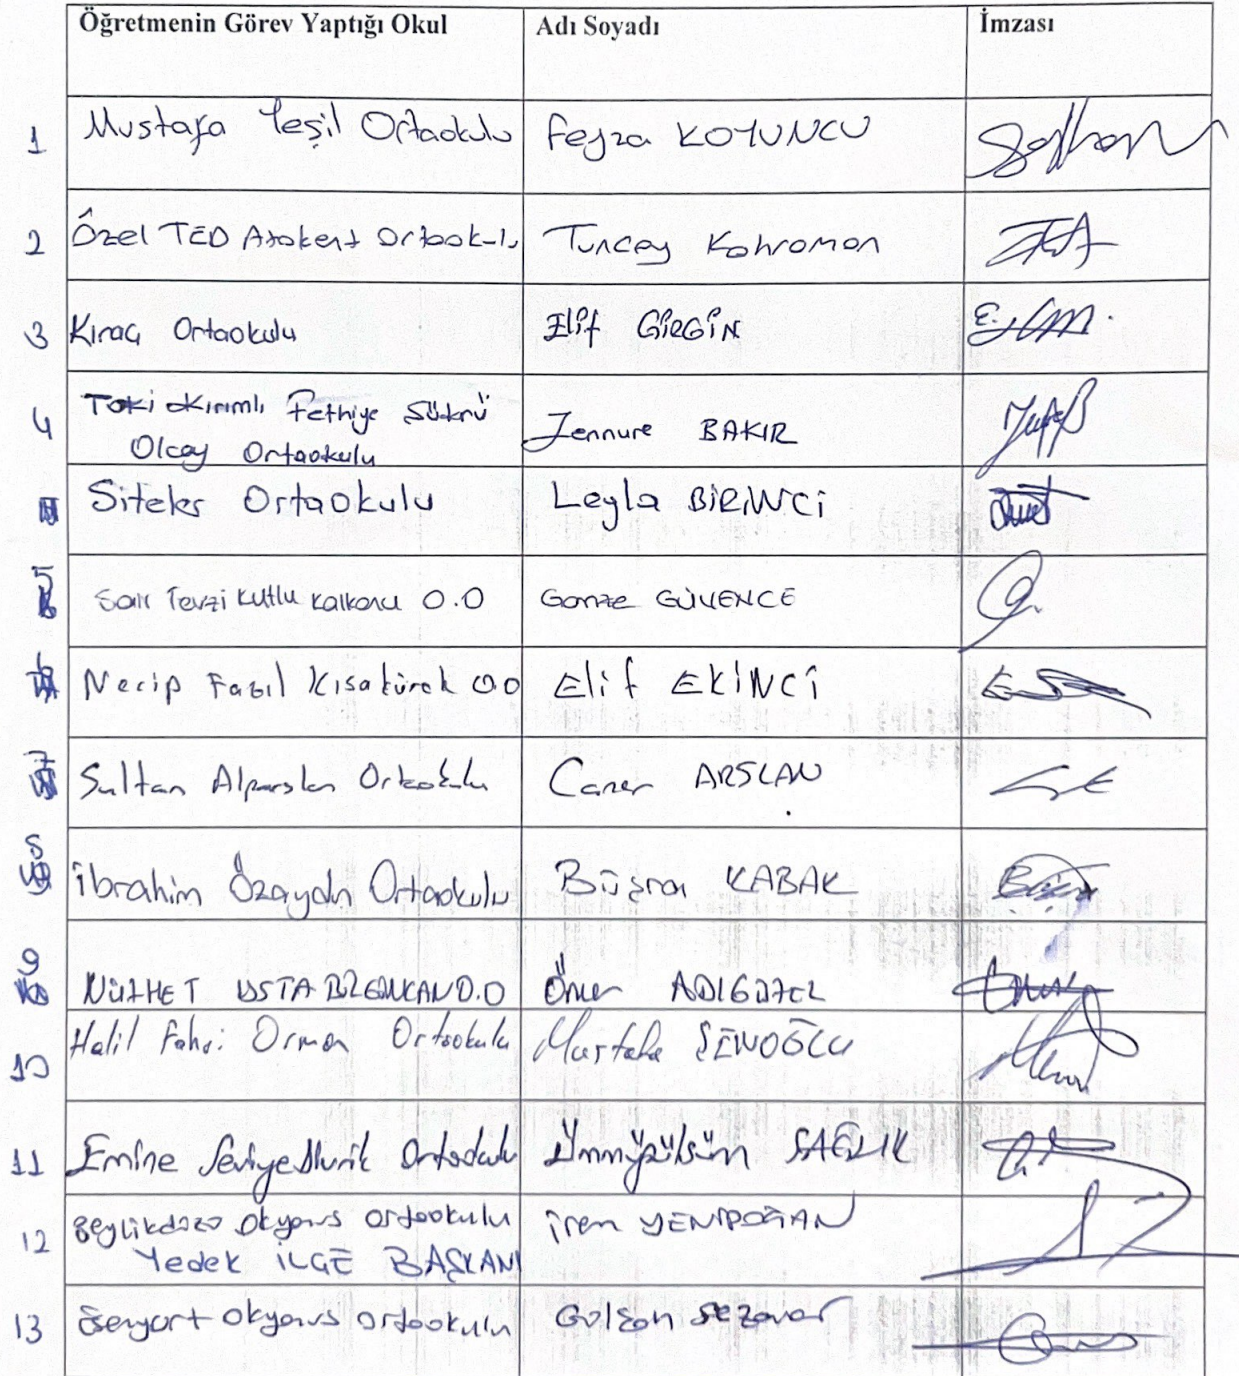 Öğretmenin Görev Yaptığı Okul Adı Soyadı İmzası
1 Mustafa Yeşil Ortaokulu Feyza KOYUNCU
2 Özel TED Atakent Ortaokulu Tuncay Kahraman
3 Kıraç Ortaokulu Elif GİRGİN
4 Toki Kırımlı Fethiye Şükrü
Olcay Ortaokulu Jennure BAKIR
Siteler Ortaokulu Leyla BİRİNCİ
5 Şair Fevzi Kutlu Kalkancı O.O Gamze GÜVENCE
6 Necip Fazıl Kısakürek O.O Elif EKİNCİ
7 Sultan Alparslan Ortaokulu Caner ARSLAN
8 İbrahim Özaydın Ortaokulu Büşra KABAK
9 NÜZHET USTA O.O Ömer ADIGÜZEL
10 Halil Fahri Orman Ortaokulu Mustafa ŞENOĞLU
11 Emine Ortaokulu Ümmügülsüm SAĞLIK
12 Beylikdüzü Okyanus Ortaokulu İrem YENİDOĞAN
Yedek İLÇE BAŞKANI
13 Esenyurt Okyanus Ortaokulu Gülşan Sezaver